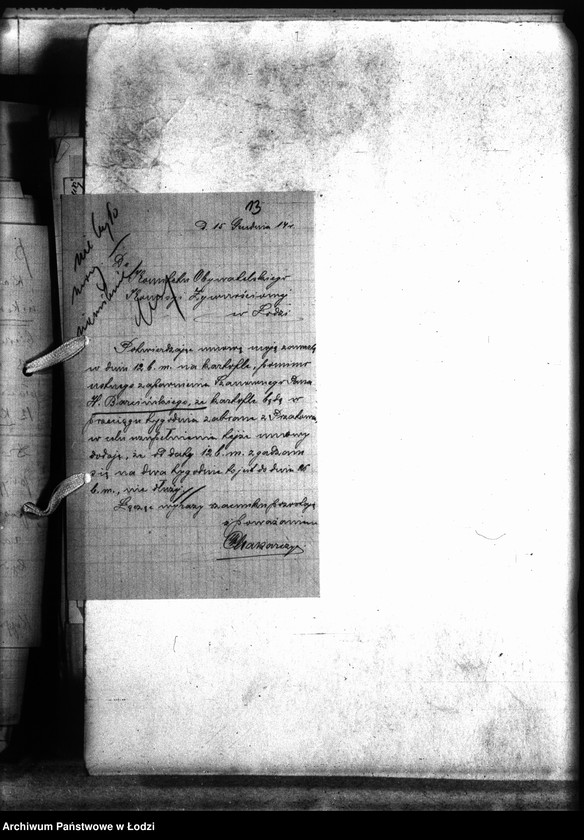 13
D. 15 Grudnia 14 r.
nie było
mowy
Do
Komitetu Obywatelskiego
Komisyi Żywnościowej
w Łodzi
Potwierdzając umowę moją zawartą
w dniu 12 b. m. na kartofle, pomimo
ustnego zapewnienia Szanownego Pana
H. Barcińskiego, że kartofle będą w
przeciągu tygodnia zabrane z
w celu uzupełnienia tejże umowy
dodaję, że od daty 12 b. m. zgadzam
się na dwa tygodnie to jest do dnia 26
b. m., nie dłużej.
Łączę wyrazy szacunku
z poważaniem
Archiwum Państwowe w Łodzi